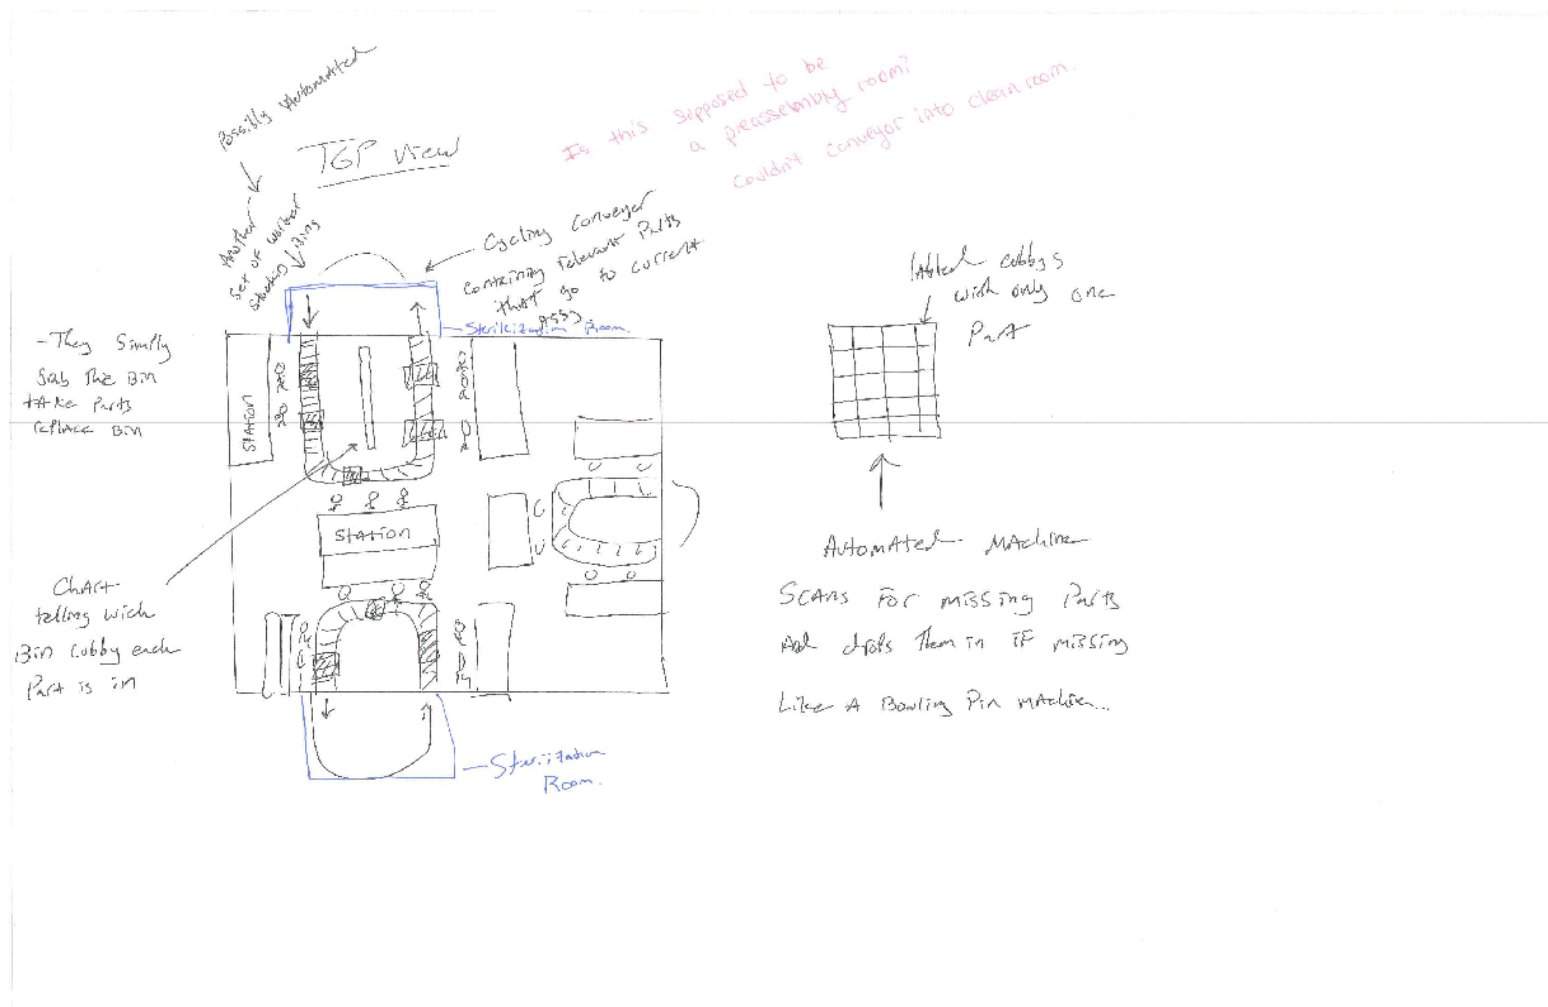 Possibly Automated
TOP View
Is this supposed to be
a preassembly room?
Couldn't conveyor into clean room.
Another
set of workers
stocking Bins
Cycling Conveyor
containing relevant Parts
that go to current
Assy
Sterilization Room.
- They Simply
Grab The Bin
tAke Parts
replace Bin
STATION
STATION
Chart
telling wich
Bin Cubby each
Part is in
Sterilization
Room.
labled cubbys
with only one
Part
Automated Machine
Scans For missing Parts
And drops Them in IF missing
Like A Bowling Pin Machine...